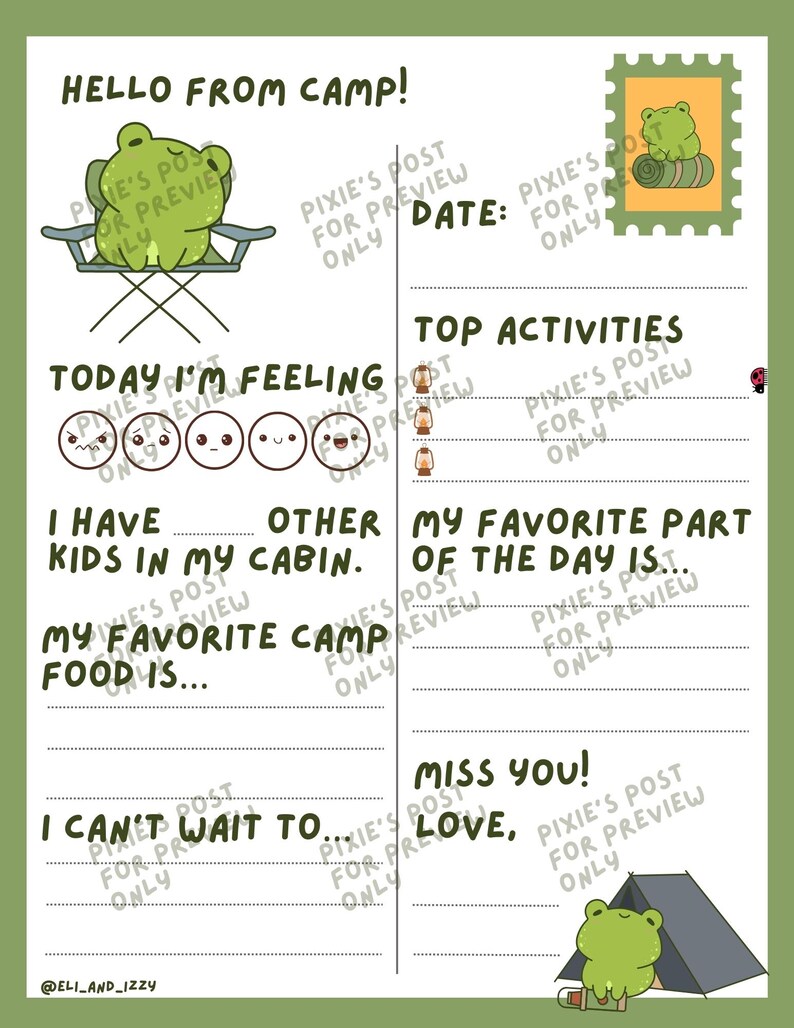 HELLO FROM CAMP!
TODAY I'M FEELING
I HAVE ________ OTHER
KIDS IN MY CABIN.
MY FAVORITE CAMP
FOOD IS...
I CAN'T WAIT TO...
@ELI_AND_IZZY
DATE:
TOP ACTIVITIES
MY FAVORITE PART
OF THE DAY IS...
MISS YOU!
LOVE,
PIXIE'S POST
FOR PREVIEW
ONLY
PIXIE'S POST
FOR PREVIEW
ONLY
PIXIE'S POST
FOR PREVIEW
ONLY
PIXIE'S POST
FOR PREVIEW
ONLY
PIXIE'S POST
FOR PREVIEW
ONLY
PIXIE'S POST
FOR PREVIEW
ONLY
PIXIE'S POST
FOR PREVIEW
ONLY
PIXIE'S POST
FOR PREVIEW
ONLY
PIXIE'S POST
FOR PREVIEW
ONLY
PIXIE'S POST
FOR PREVIEW
ONLY
PIXIE'S POST
FOR PREVIEW
ONLY
PIXIE'S POST
FOR PREVIEW
ONLY